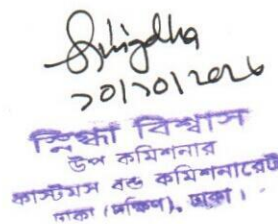 Snigdha
২০/১০/২০২৬
স্নিগ্ধা বিশ্বাস
উপ কমিশনার
কাস্টমস বন্ড কমিশনারেট
ঢাকা (দক্ষিণ), ঢাকা।